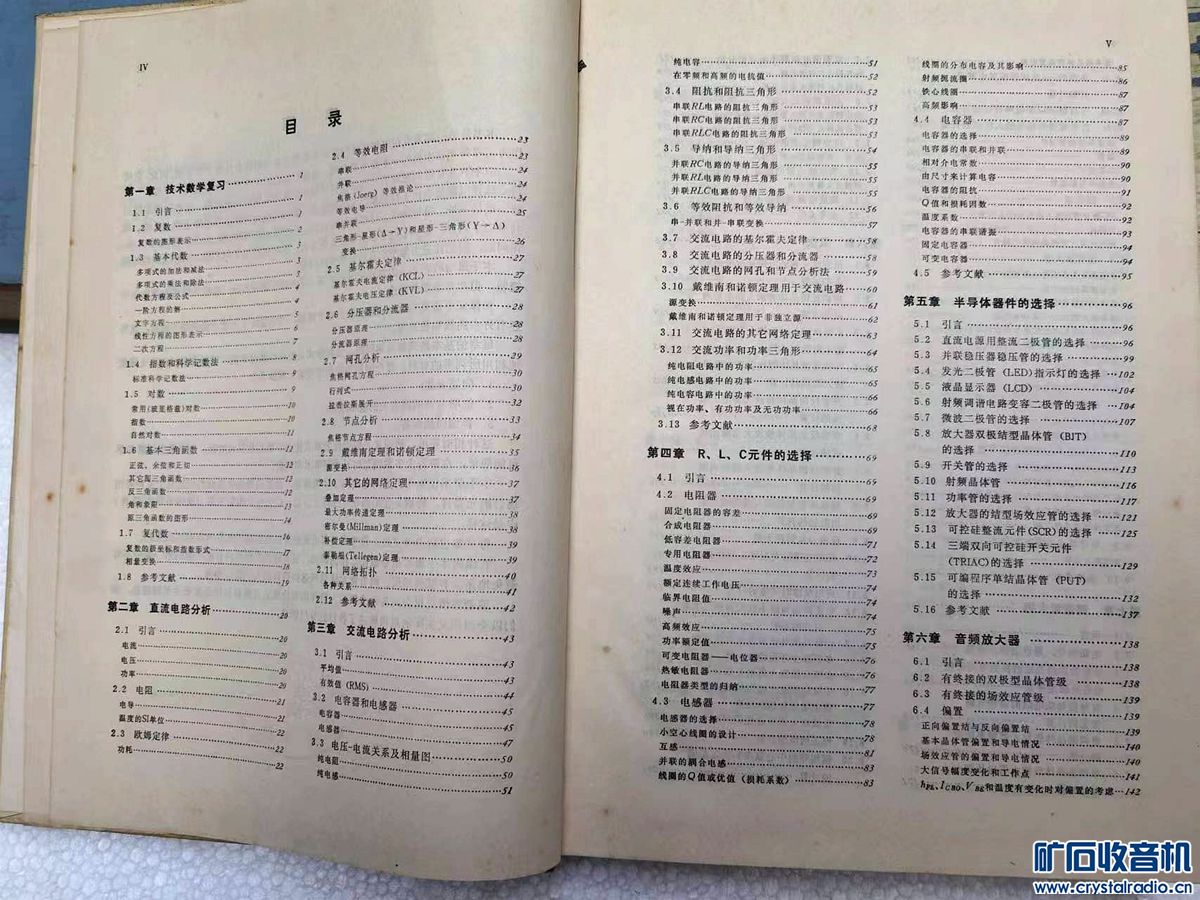 IV
目 录
第一章 技术数学复习 1
1.1 引言 1
1.2 复数 1
复数的图形表示 2
1.3 基本代数 3
多项式的加法和减法 3
多项式的乘法和除法 3
代数方程及公式 4
一阶方程的解 4
文字方程 5
线性方程的图形表示 6
二次方程 7
1.4 指数和科学记数法 8
标准科学记数法 9
1.5 对数 9
常用(彼里格兹)对数 10
指数 10
自然对数 11
1.6 基本三角函数 11
正弦、余弦和正切 12
其它圆三角函数 12
反三角函数 12
角和象限 13
原三角函数的图形 14
1.7 复代数 16
复数的极坐标和指数形式 17
相量变换 18
1.8 参考文献 19
第二章 直流电路分析 20
2.1 引言 20
电流 20
电压 20
功率 20
2.2 电阻 21
电导 21
温度的SI单位 22
2.3 欧姆定律 22
功耗 22
2.4 等效电阻 23
串联 23
并联 24
焦格(Joerg)等效推论 24
等效电导 24
串并联 25
三角形-星形(Δ→Y)和星形-三角形(Y→Δ)
变换 26
2.5 基尔霍夫定律 27
基尔霍夫电流定律(KCL) 27
基尔霍夫电压定律(KVL) 27
2.6 分压器和分流器 28
分压器原理 28
分流器原理 28
2.7 网孔分析 29
焦格网孔方程 30
行列式 30
拉普拉斯展开 32
2.8 节点分析 33
焦格节点方程 34
2.9 戴维南定理和诺顿定理 35
源变换 36
2.10 其它的网络定理 37
叠加定理 37
最大功率传递定理 38
密尔曼(Millman)定理 38
补偿定理 39
泰勒根(Tellegen)定理 39
2.11 网络拓扑 40
各种关系 41
2.12 参考文献 42
第三章 交流电路分析 43
3.1 引言 43
平均值 43
有效值(RMS) 44
3.2 电容器和电感器 45
电容器 45
电感器 47
3.3 电压-电流关系及相量图 50
纯电阻 50
纯电感 51
V
纯电容 51
在零频和高频的电抗值 52
3.4 阻抗和阻抗三角形 52
串联RL电路的阻抗三角形 53
串联RC电路的阻抗三角形 53
串联RLC电路的阻抗三角形 53
3.5 导纳和导纳三角形 54
并联RC电路的导纳三角形 55
并联RL电路的导纳三角形 55
并联RLC电路的导纳三角形 55
3.6 等效阻抗和等效导纳 56
串-并联和并-串联变换 57
3.7 交流电路的基尔霍夫定律 58
3.8 交流电路的分压器和分流器 58
3.9 交流电路的网孔和节点分析法 59
3.10 戴维南和诺顿定理用于交流电路 60
源变换 61
戴维南和诺顿定理用于非独立源 62
3.11 交流电路的其它网络定理 63
3.12 交流功率和功率三角形 64
纯电阻电路中的功率 65
纯电感电路中的功率 65
纯电容电路中的功率 66
视在功率、有功功率及无功功率 66
3.13 参考文献 68
第四章 R、L、C元件的选择 69
4.1 引言 69
4.2 电阻器 69
固定电阻器的容差 69
合成电阻器 69
低容差电阻器 71
专用电阻器 72
温度效应 73
额定连续工作电压 74
临界电阻值 74
噪声 74
高频效应 75
功率额定值 75
可变电阻器——电位器 76
热敏电阻器 76
电阻器类型的归纳 77
4.3 电感器 77
电感器的选择 78
小空心线圈的设计 78
互感 81
并联的耦合电感 82
线圈的Q值或优值(损耗系数) 83
线圈的分布电容及其影响 85
射频扼流圈 86
铁心线圈 87
高频影响 87
4.4 电容器 87
电容器的选择 89
电容器的串联和并联 89
相对介电常数 90
由尺寸来计算电容 90
电容器的阻抗 91
Q值和损耗因数 92
温度系数 92
电容器的串联谐振 93
固定电容器 94
可变电容器 94
4.5 参考文献 95
第五章 半导体器件的选择 96
5.1 引言 96
5.2 直流电源用整流二极管的选择 96
5.3 并联稳压器稳压管的选择 99
5.4 发光二极管(LED)指示灯的选择 102
5.5 液晶显示器(LCD) 104
5.6 射频调谐电路变容二极管的选择 104
5.7 微波二极管的选择 107
5.8 放大器双极结型晶体管(BJT)
的选择 110
5.9 开关管的选择 113
5.10 射频晶体管 116
5.11 功率管的选择 117
5.12 放大器的结型场效应管的选择 121
5.13 可控硅整流元件(SCR)的选择 125
5.14 三端双向可控硅开关元件
(TRIAC)的选择 129
5.15 可编程序单结晶体管(PUT)
的选择 132
5.16 参考文献 137
第六章 音频放大器 138
6.1 引言 138
6.2 有终接的双极型晶体管级 138
6.3 有终接的场效应管级 139
6.4 偏置 139
正向偏置结与反向偏置结 139
基本晶体管偏置和导电情况 140
场效应管的偏置和导电情况 140
大信号幅度变化和工作点 141
hFE、ICBO、VBE和温度有变化时对偏置的考虑 142
矿石收音机
www.crystalradio.cn